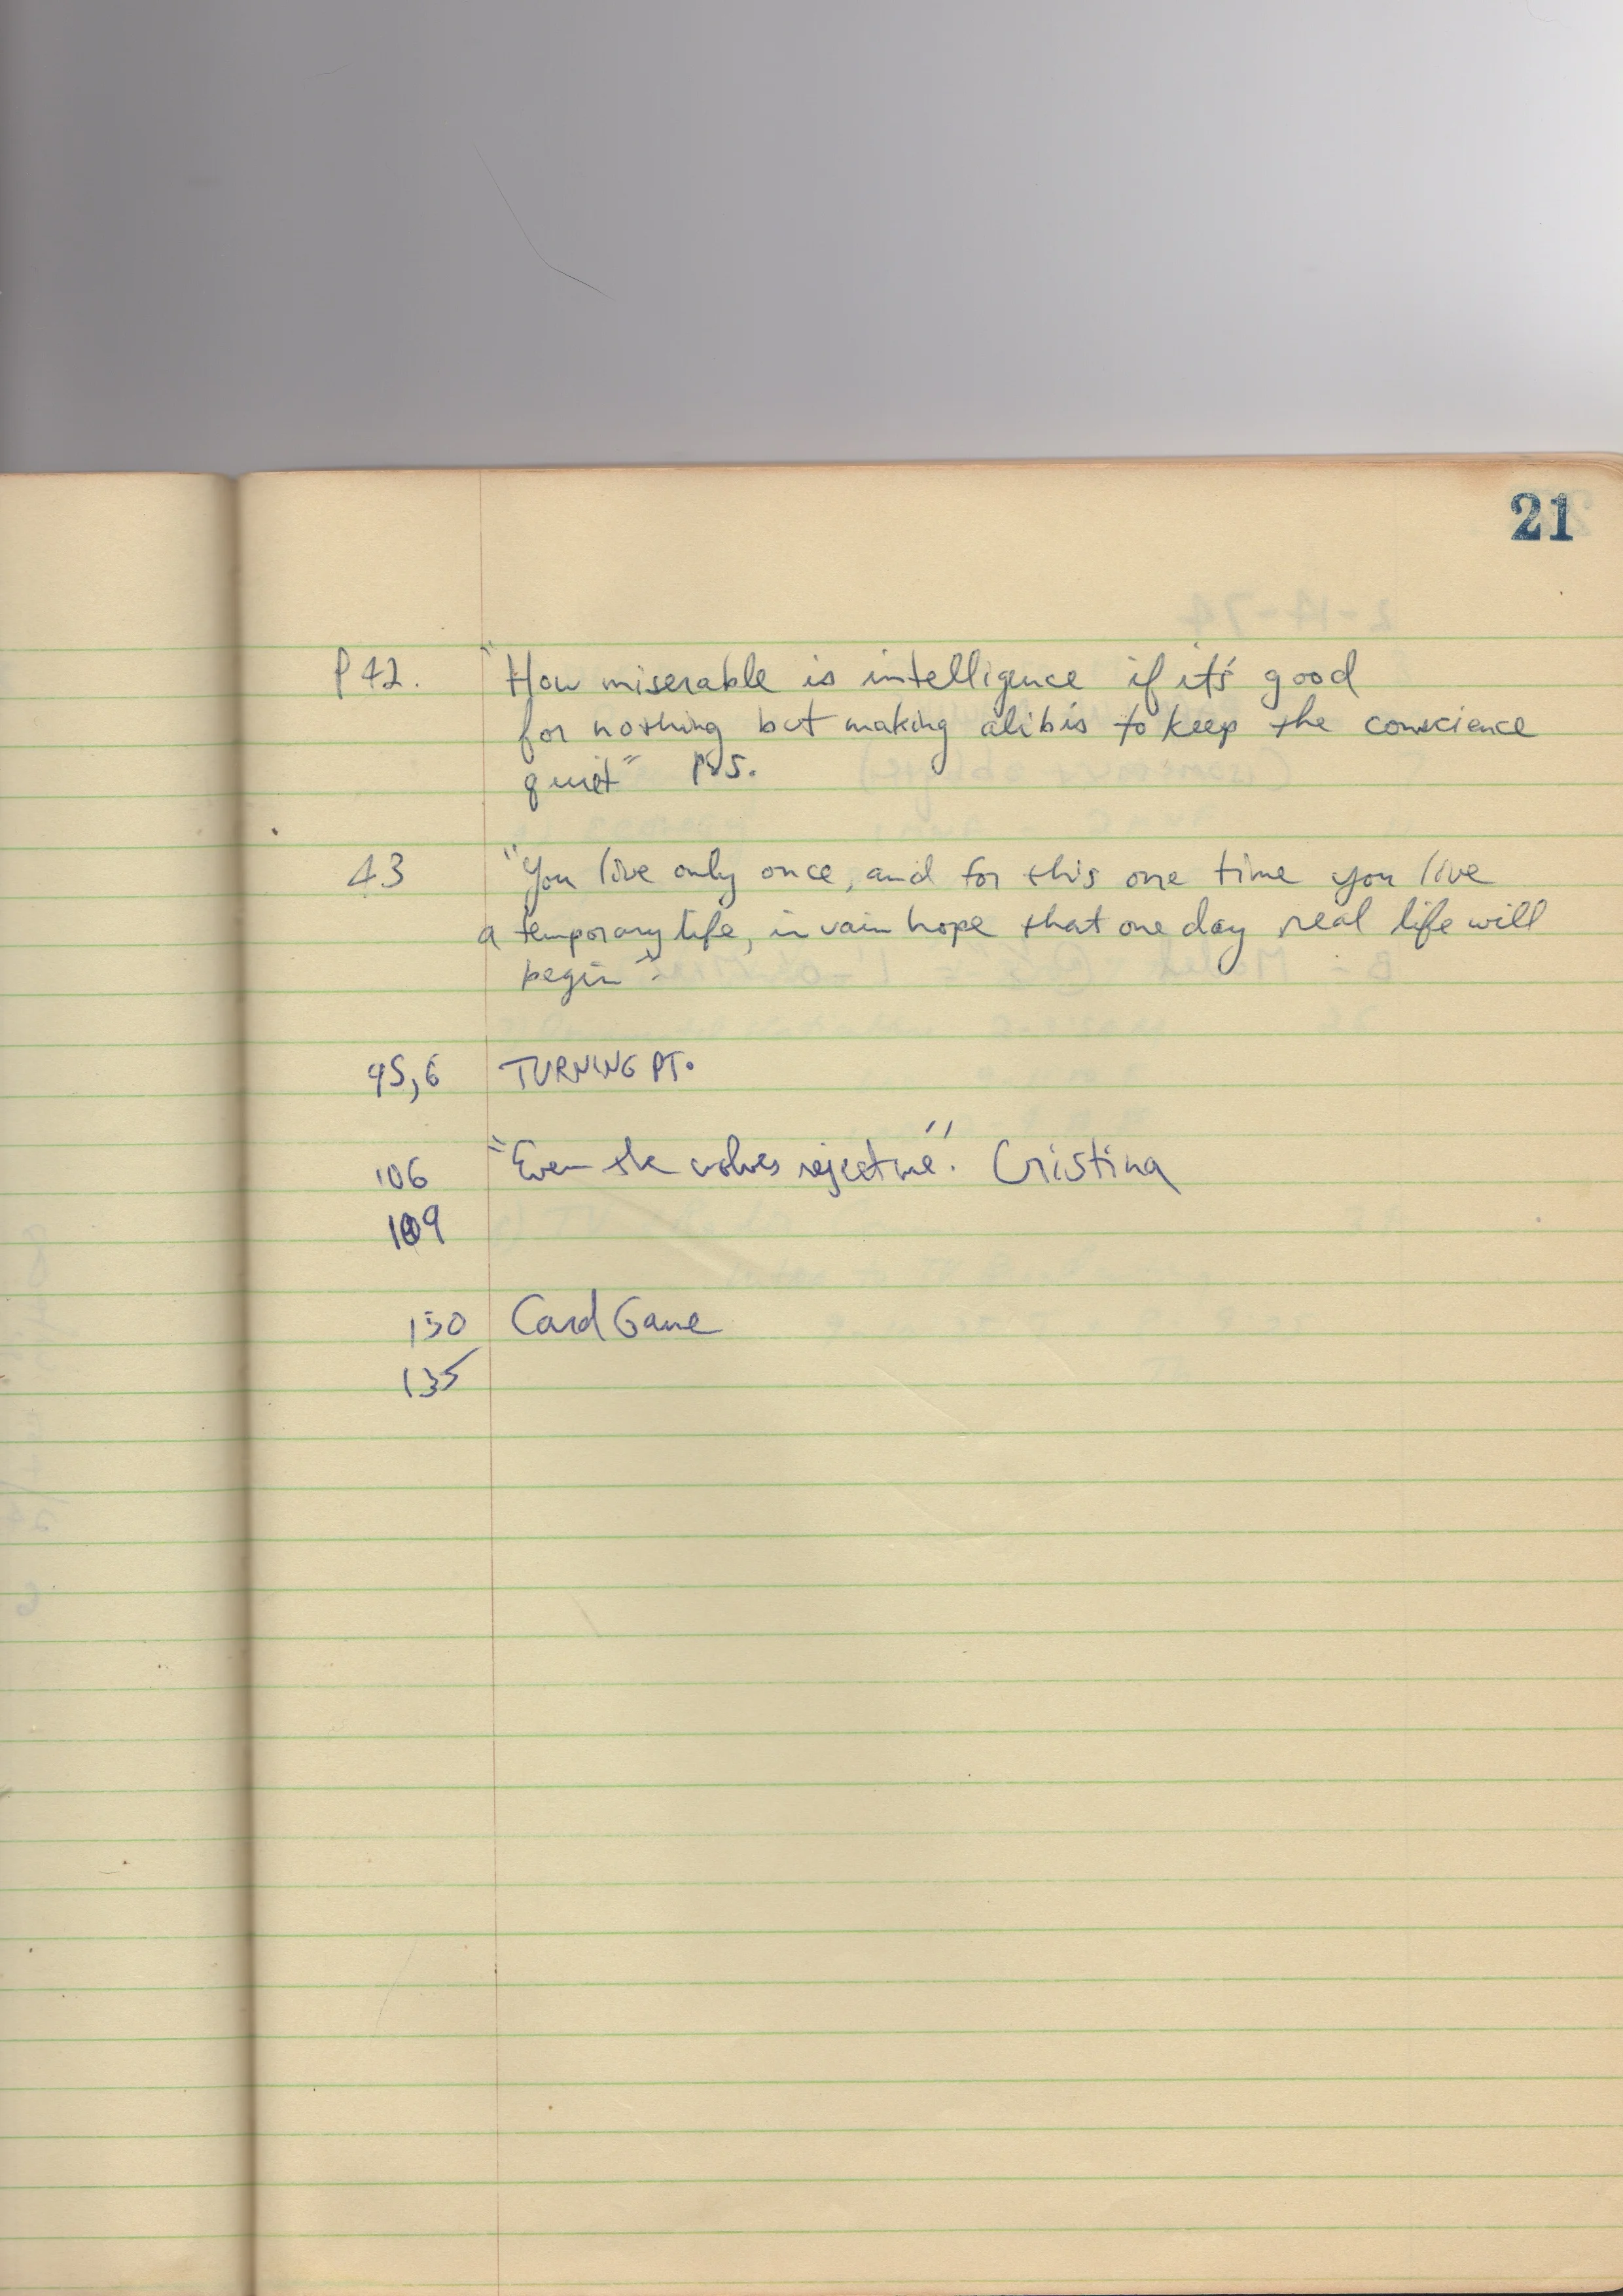 21
P 42. "How miserable is intelligence if it's good
for nothing but making alibis to keep the conscience
quiet" P.S.
43 "You live only once, and for this one time you live
a temporary life, in vain hope that one day real life will
begin".
95,6 TURNING PT.
106 "Even the wolves reject me". Cristina
109
130 Card Game
135